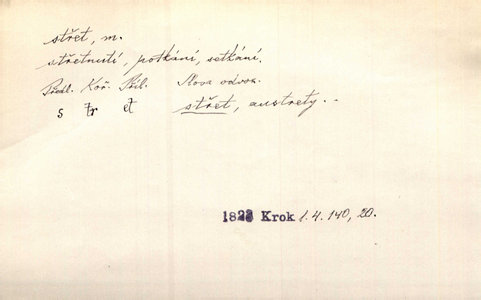 střet, m.
střetnutí, potkání, setkání.
Předl. Koř. Příl. Slova odvoz.
s tr et střet, austrety..
1823 Krok I. 4. 140, 20.